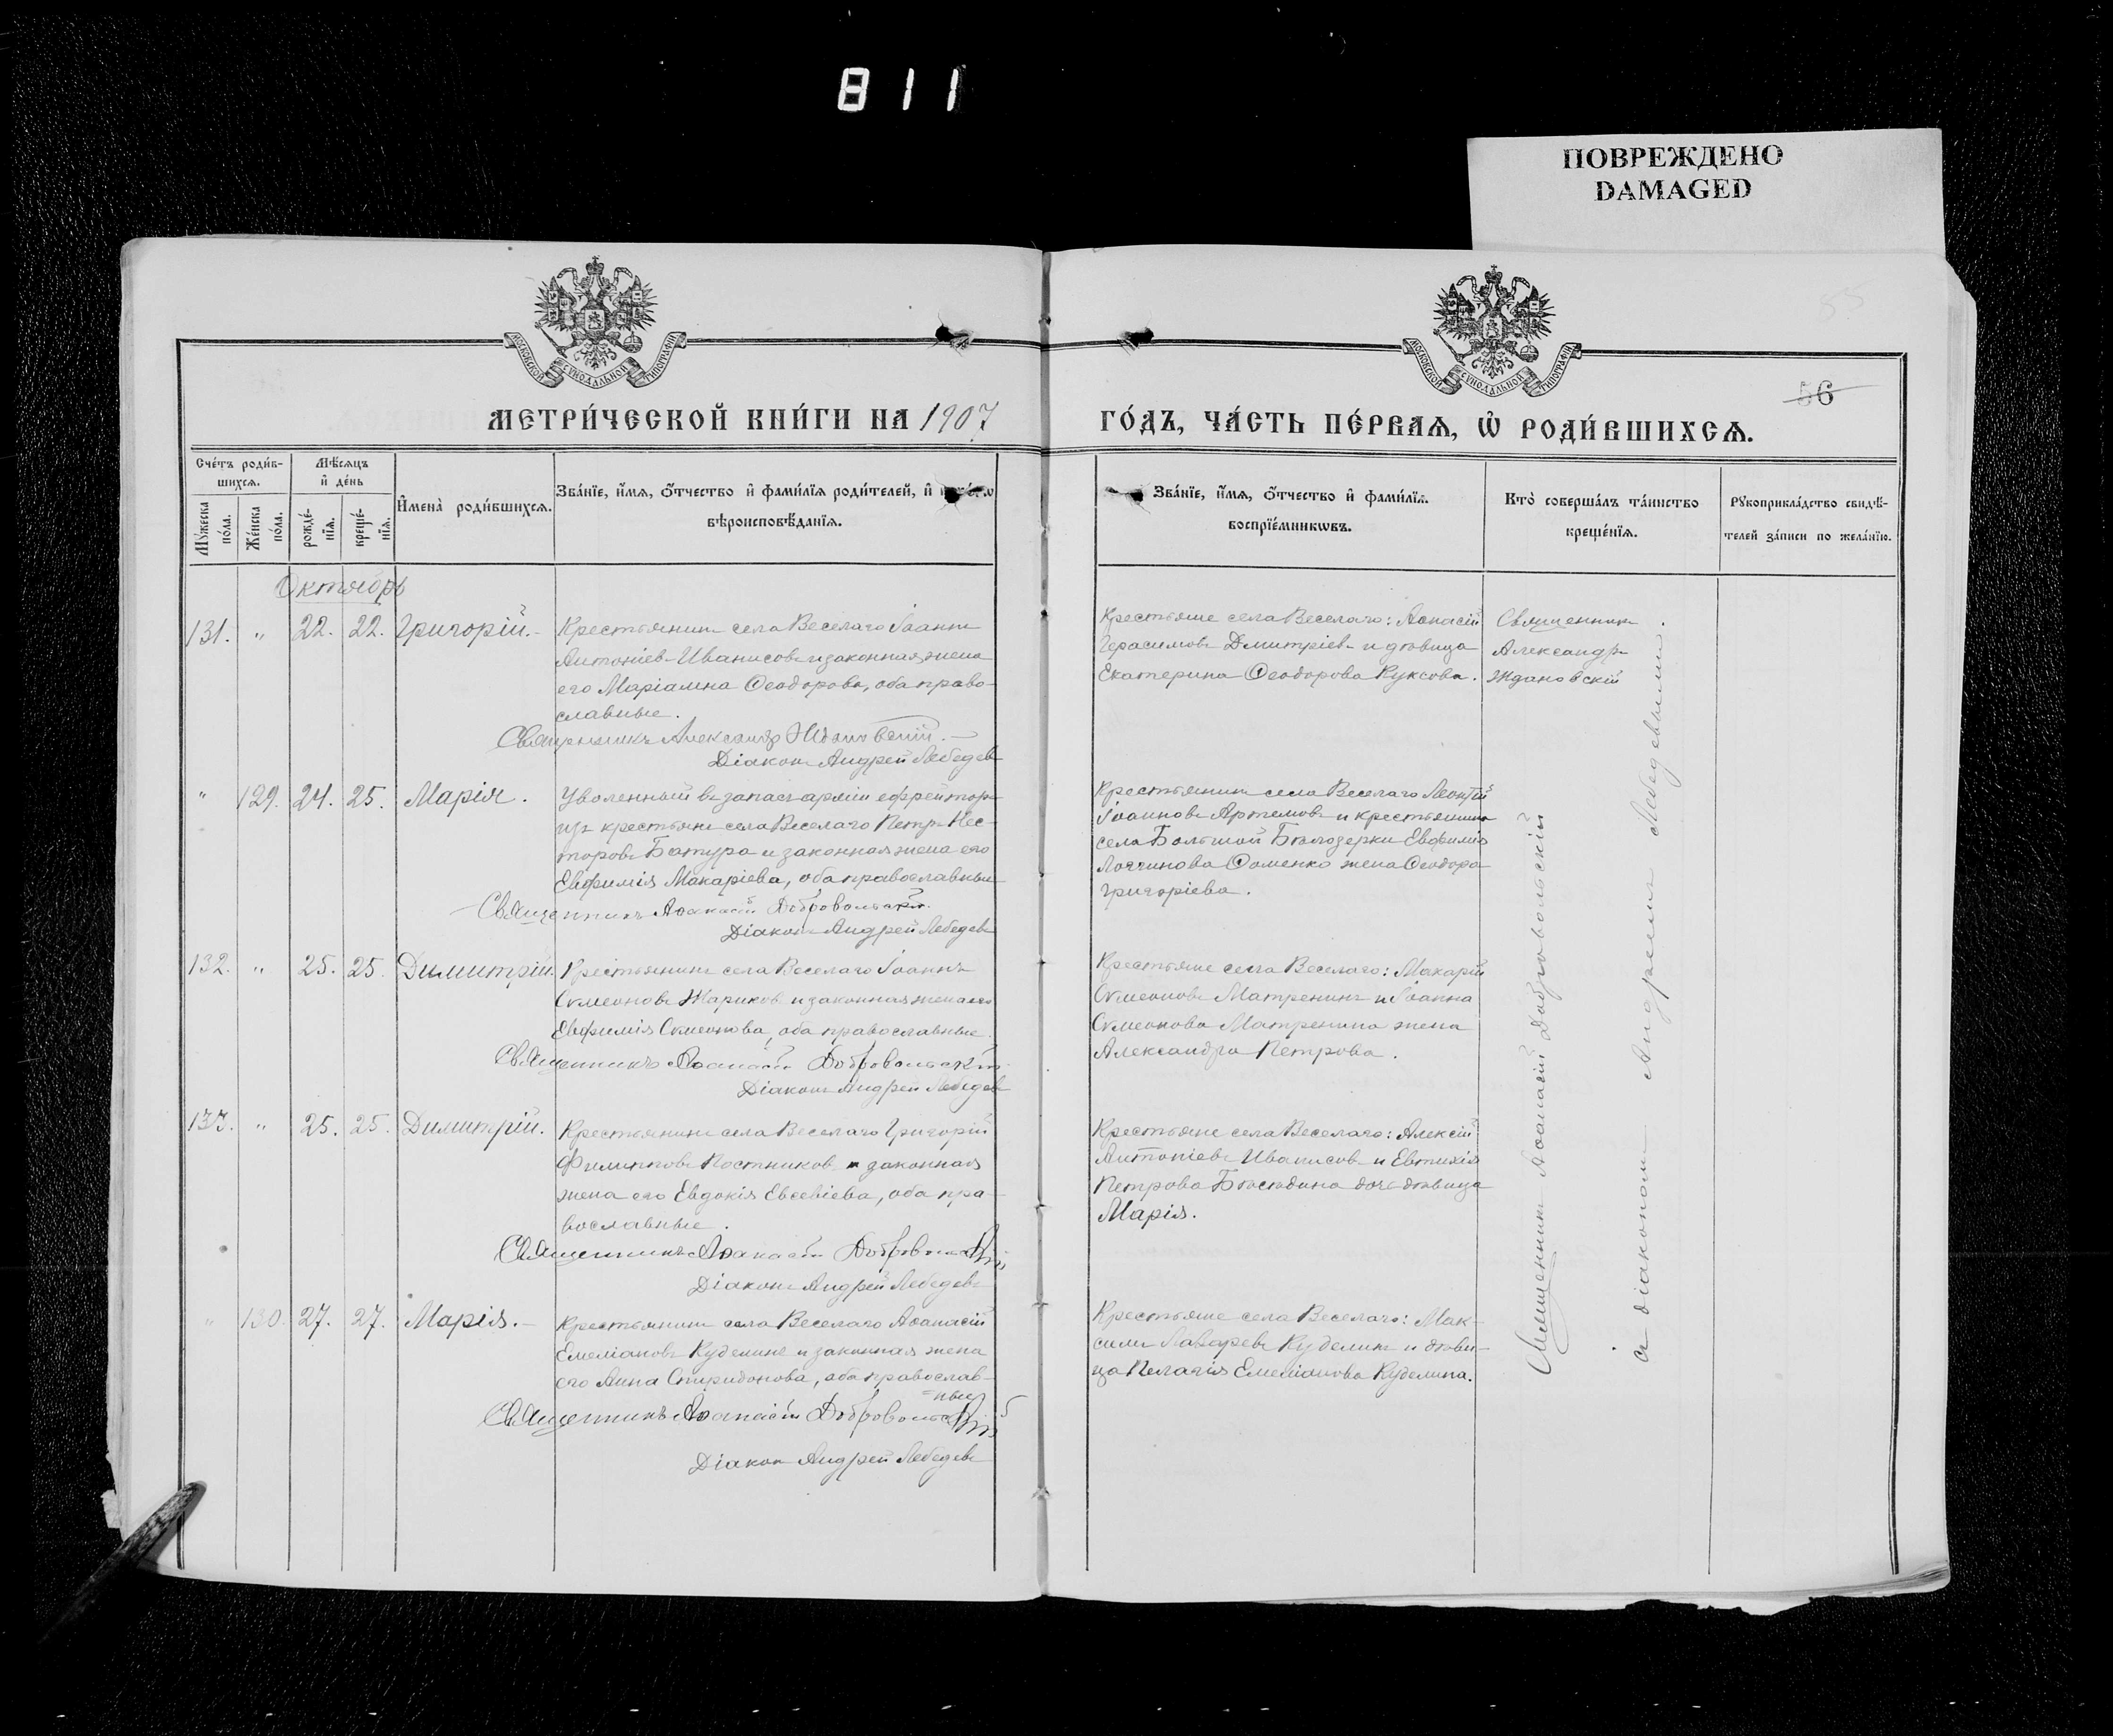 811
ПОВРЕЖДЕНО
DAMAGED
МОСКОВСКОЙ СѴНОДАЛЬНОЙ ТИПОГРАФІИ
МОСКОВСКОЙ СѴНОДАЛЬНОЙ ТИПОГРАФІИ
56
МЕТРИ́ЧЕСКОЙ КНИ́ГИ НА 1907
ГО́ДЪ, ЧА́СТЬ ПЕ́РВАѦ, Ѡ҆ РОДИ́ВШИХСѦ.
Сче́тъ роди́в-
шихсѧ.
Мѣ́сѧцъ
и҆ де́нь
Мꙋ́жеска
по́ла.
Же́нска
по́ла.
рожде́-
нїѧ.
креще́-
нїѧ.
И҆мена̀ роди́вшихсѧ.
Зва́нїе, и҆́мѧ, о҆́тчество и҆ фами́лїѧ роди́телей, и҆
вѣроисповѣ́данїѧ.
Зва́нїе, и҆́мѧ, о҆́тчество и҆ фами́лїѧ
воспрїе́мникѡвъ.
Кто̀ соверша́лъ та́инство
креще́нїѧ.
Рꙋкоприкла́дство свидѣ́-
телей за́писи по жела́нїю.
Октябрь
131. „ 22. 22. Григорій.
Крестьянинъ села Веселаго Іоаннъ
Антоніевъ Иванисовъ и законная жена
его Маріамна Ѳеодорова, оба право-
славные.
Священникъ Александръ Ждановскій.
Діаконъ Андрей Лебедевъ
Крестьяне села Веселаго: Аѳанасій
Герасимовъ Дмитріевъ и дѣвица
Екатерина Ѳеодорова Куксова.
Священникъ
Александръ
Ждановскій
„ 129. 24. 25. Марія.
Уволенный въ запасъ арміи ефрейторъ
изъ крестьянъ села Веселаго Петръ Нес-
торовъ Батура и законная жена его
Евфимія Макаріева, оба православные
Священникъ Аѳанасій Добровольскій.
Діаконъ Андрей Лебедевъ
Крестьянинъ села Веселаго Леонтій
Іоанновъ Артемовъ и крестьянина
села Большой Бѣлозерки Евфимія
Логгинова Ѳоменко жена Ѳеодора
Григоріева.
132. „ 25. 25. Димитрій.
Крестьянинъ села Веселаго Іоаннъ
Сѵмеоновъ Жариковъ и законная жена его
Евфимія Сѵмеонова, оба православные.
Священникъ Аѳанасій Добровольскій.
Діаконъ Андрей Лебедевъ
Крестьяне села Веселаго: Макарій
Сѵмеоновъ Матренинъ и Іоанна
Сѵмеонова Матренина жена
Александра Петрова.
133. „ 25. 25. Димитрій.
Крестьянинъ села Веселаго Григорій
Филипповъ Постниковъ и законная
жена его Евдокія Евсевіева, оба пра-
вославные.
Священникъ Аѳанасій Добровольскій
Діаконъ Андрей Лебедевъ
Крестьяне села Веселаго: Алексій
Антоніевъ Иванисовъ и Евтихія
Петрова дочь дѣвица
Марія.
„ 130. 27. 27. Марія.
Крестьянинъ села Веселаго Аѳанасій
Емеліановъ Куделинъ и законная жена
его Анна Спиридонова, оба православ-
=ные
Священникъ Аѳанасій Добровольскій
Діаконъ Андрей Лебедевъ
Крестьяне села Веселаго: Мак-
симъ Лазаревъ Куделинъ и дѣви-
ца Пелагія Емеліанова Куделина.
Священникъ Аѳанасій Добровольскій
съ діакономъ Андреемъ Лебедевымъ